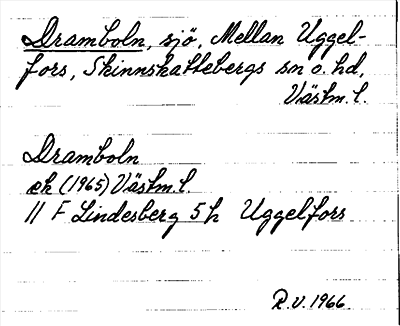 Dramboln, sjö, Mellan Uggel-
fors, Skinnskattebergs sn o. hd,
Västm. l.
Dramboln
ek (1965) Västm. l.
11 F Lindesberg 5 h Uggelfors
R.V. 1966